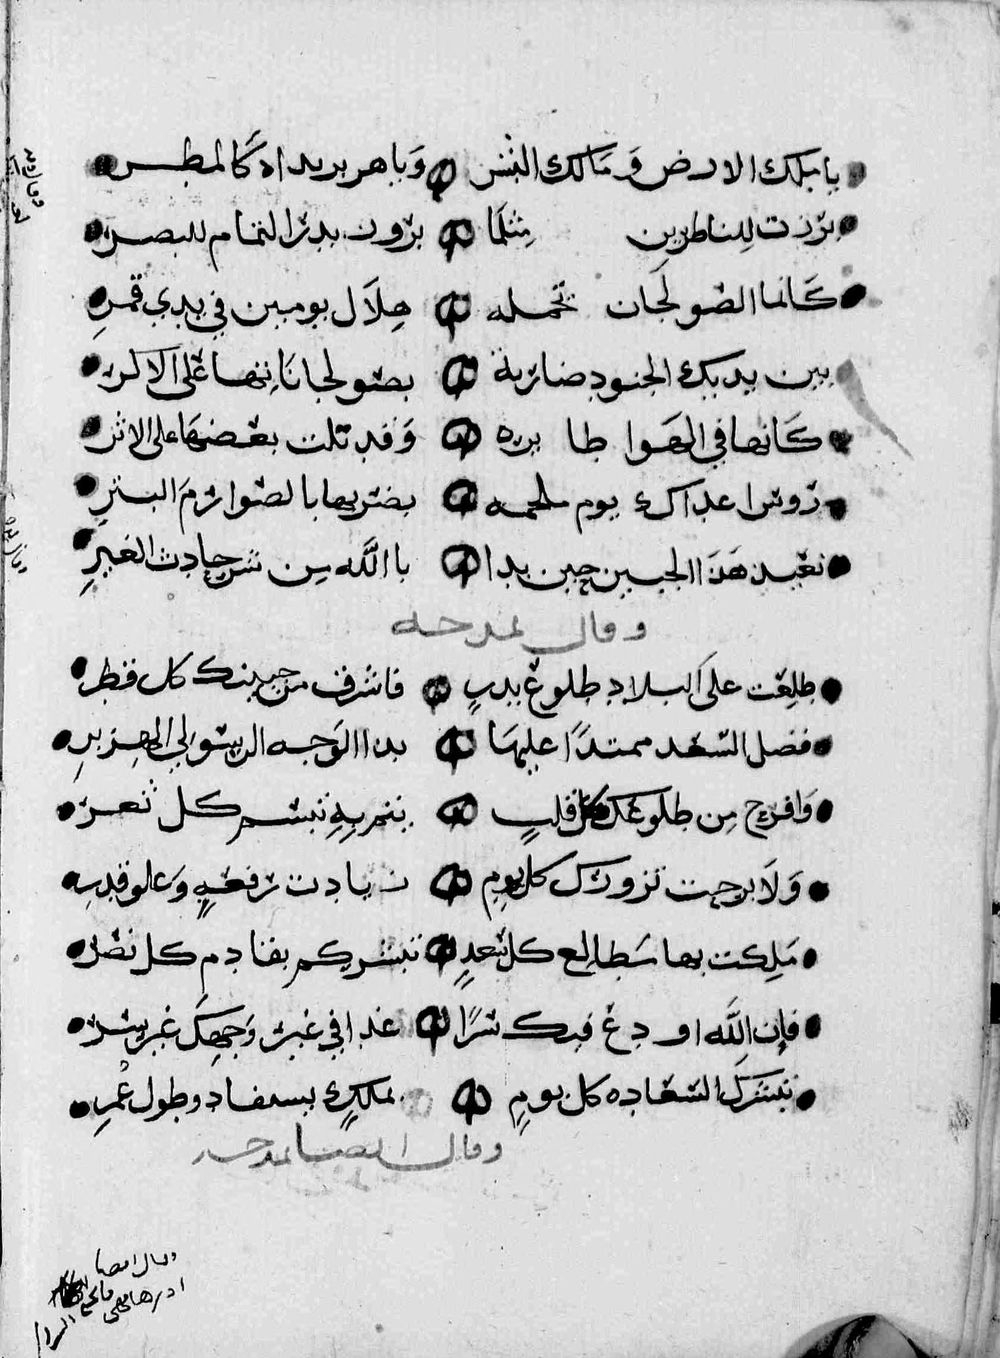 يا ملك الارض وَمَالك البشر وَيا هزبر يداه كَالمطر
برزت للناظرين مثلمَا برُوز بدر التمام للبصر
كَانما الصّولجَان تحمله هِلَال يومين في يدي قمرِ
بين يديك الجنود ضاربة بصولجانَاتها عَلى الاكر
كَانها في الهَوا طايره وَقد تلت بعضهَا على الاثر
روس اعداك يوم ملحمه يضربها بالصّوارم البترِ
نعيذ هَذَا الجبين حين بدا باللَّه مِن شر حادث الغيرِ
وقال يمدحه
طلعت على البلاد طلوع بدرٍ فاشرق من جبينك كل قطرِ
فضل السّعد ممتدًا عليهَا بدا الوَجه الرسُولي الهزبرِ
وَافرح مِن طلوعك كل قلبٍ بتدبيرِه تبسّم كل ثغر
وَلَا برحت تزورك كل يومٍ زيادت رفعةٍ وَعلو قدرِ
مَلكت بها سَطالع كل سَعدٍ تبشركم بقادم كل نصر
فإن اللَّه اودع فيك سرًا غدا في غير وَجهِكَ غير سرّ
تبشرك السّعاده كل يومٍ بملكٍ مستفاد وطول عُمرِ
وقال ايضا يمدحه
وقال ايضا